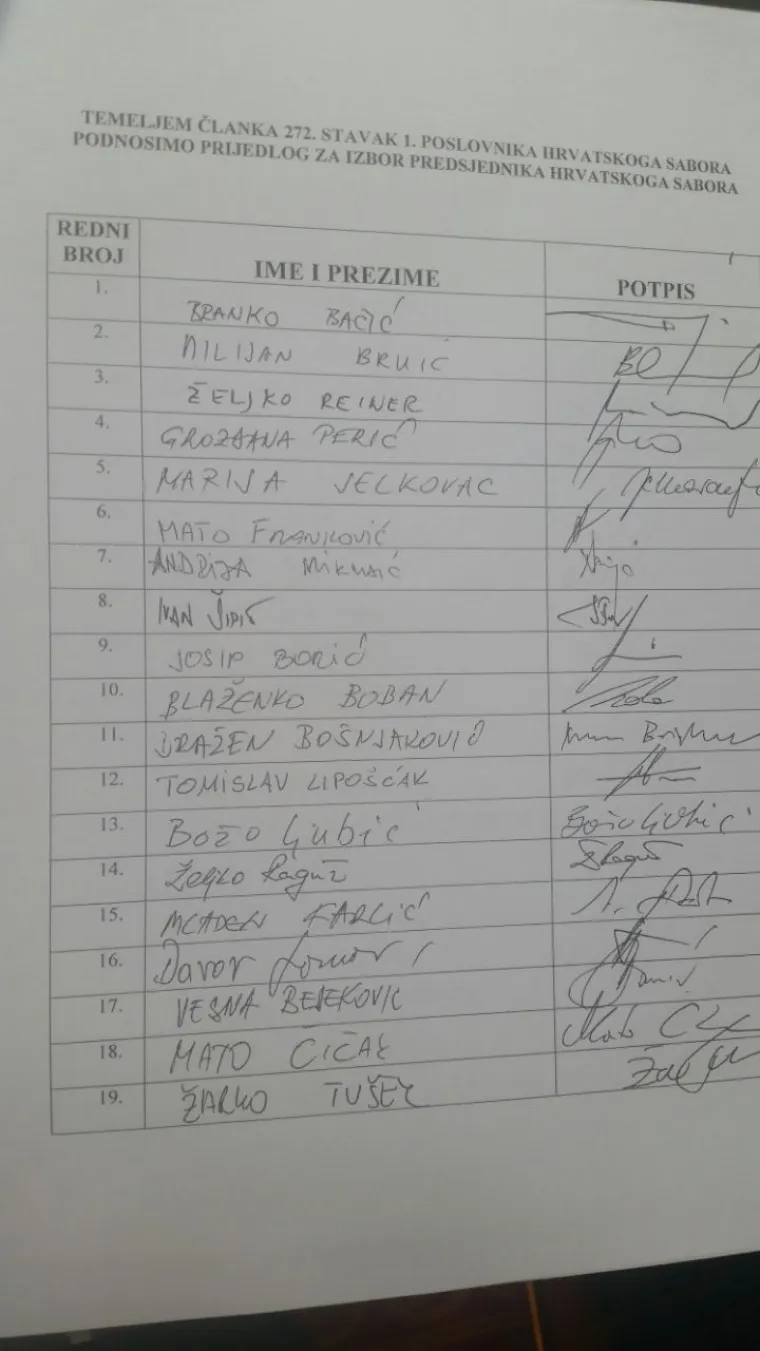 TEMELJEM ČLANKA 272. STAVAK 1. POSLOVNIKA HRVATSKOGA SABORA
PODNOSIMO PRIJEDLOG ZA IZBOR PREDSJEDNIKA HRVATSKOGA SABORA
REDNI BROJ IME I PREZIME POTPIS
1. BRANKO BAČIĆ
2. MILIJAN BRKIĆ
3. ŽELJKO REINER
4. GROZDANA PERIĆ
5. MARIJA JELKOVAC
6. MATO FRANKOVIĆ
7. ANDRIJA MIKULIĆ
8. IVAN ŠIPIĆ
9. JOSIP BORIĆ
10. BLAŽENKO BOBAN
11. DRAŽEN BOŠNJAKOVIĆ
12. TOMISLAV LIPOŠĆAK
13. Božo Ljubić Božo Ljubić
14. Željko Raguž ŽRaguž
15. MLADEN KARLIĆ
16. Davor
17. VESNA BEDEKOVIĆ
18. MATO ČIČAK Mato
19. ŽARKO TUŠEK